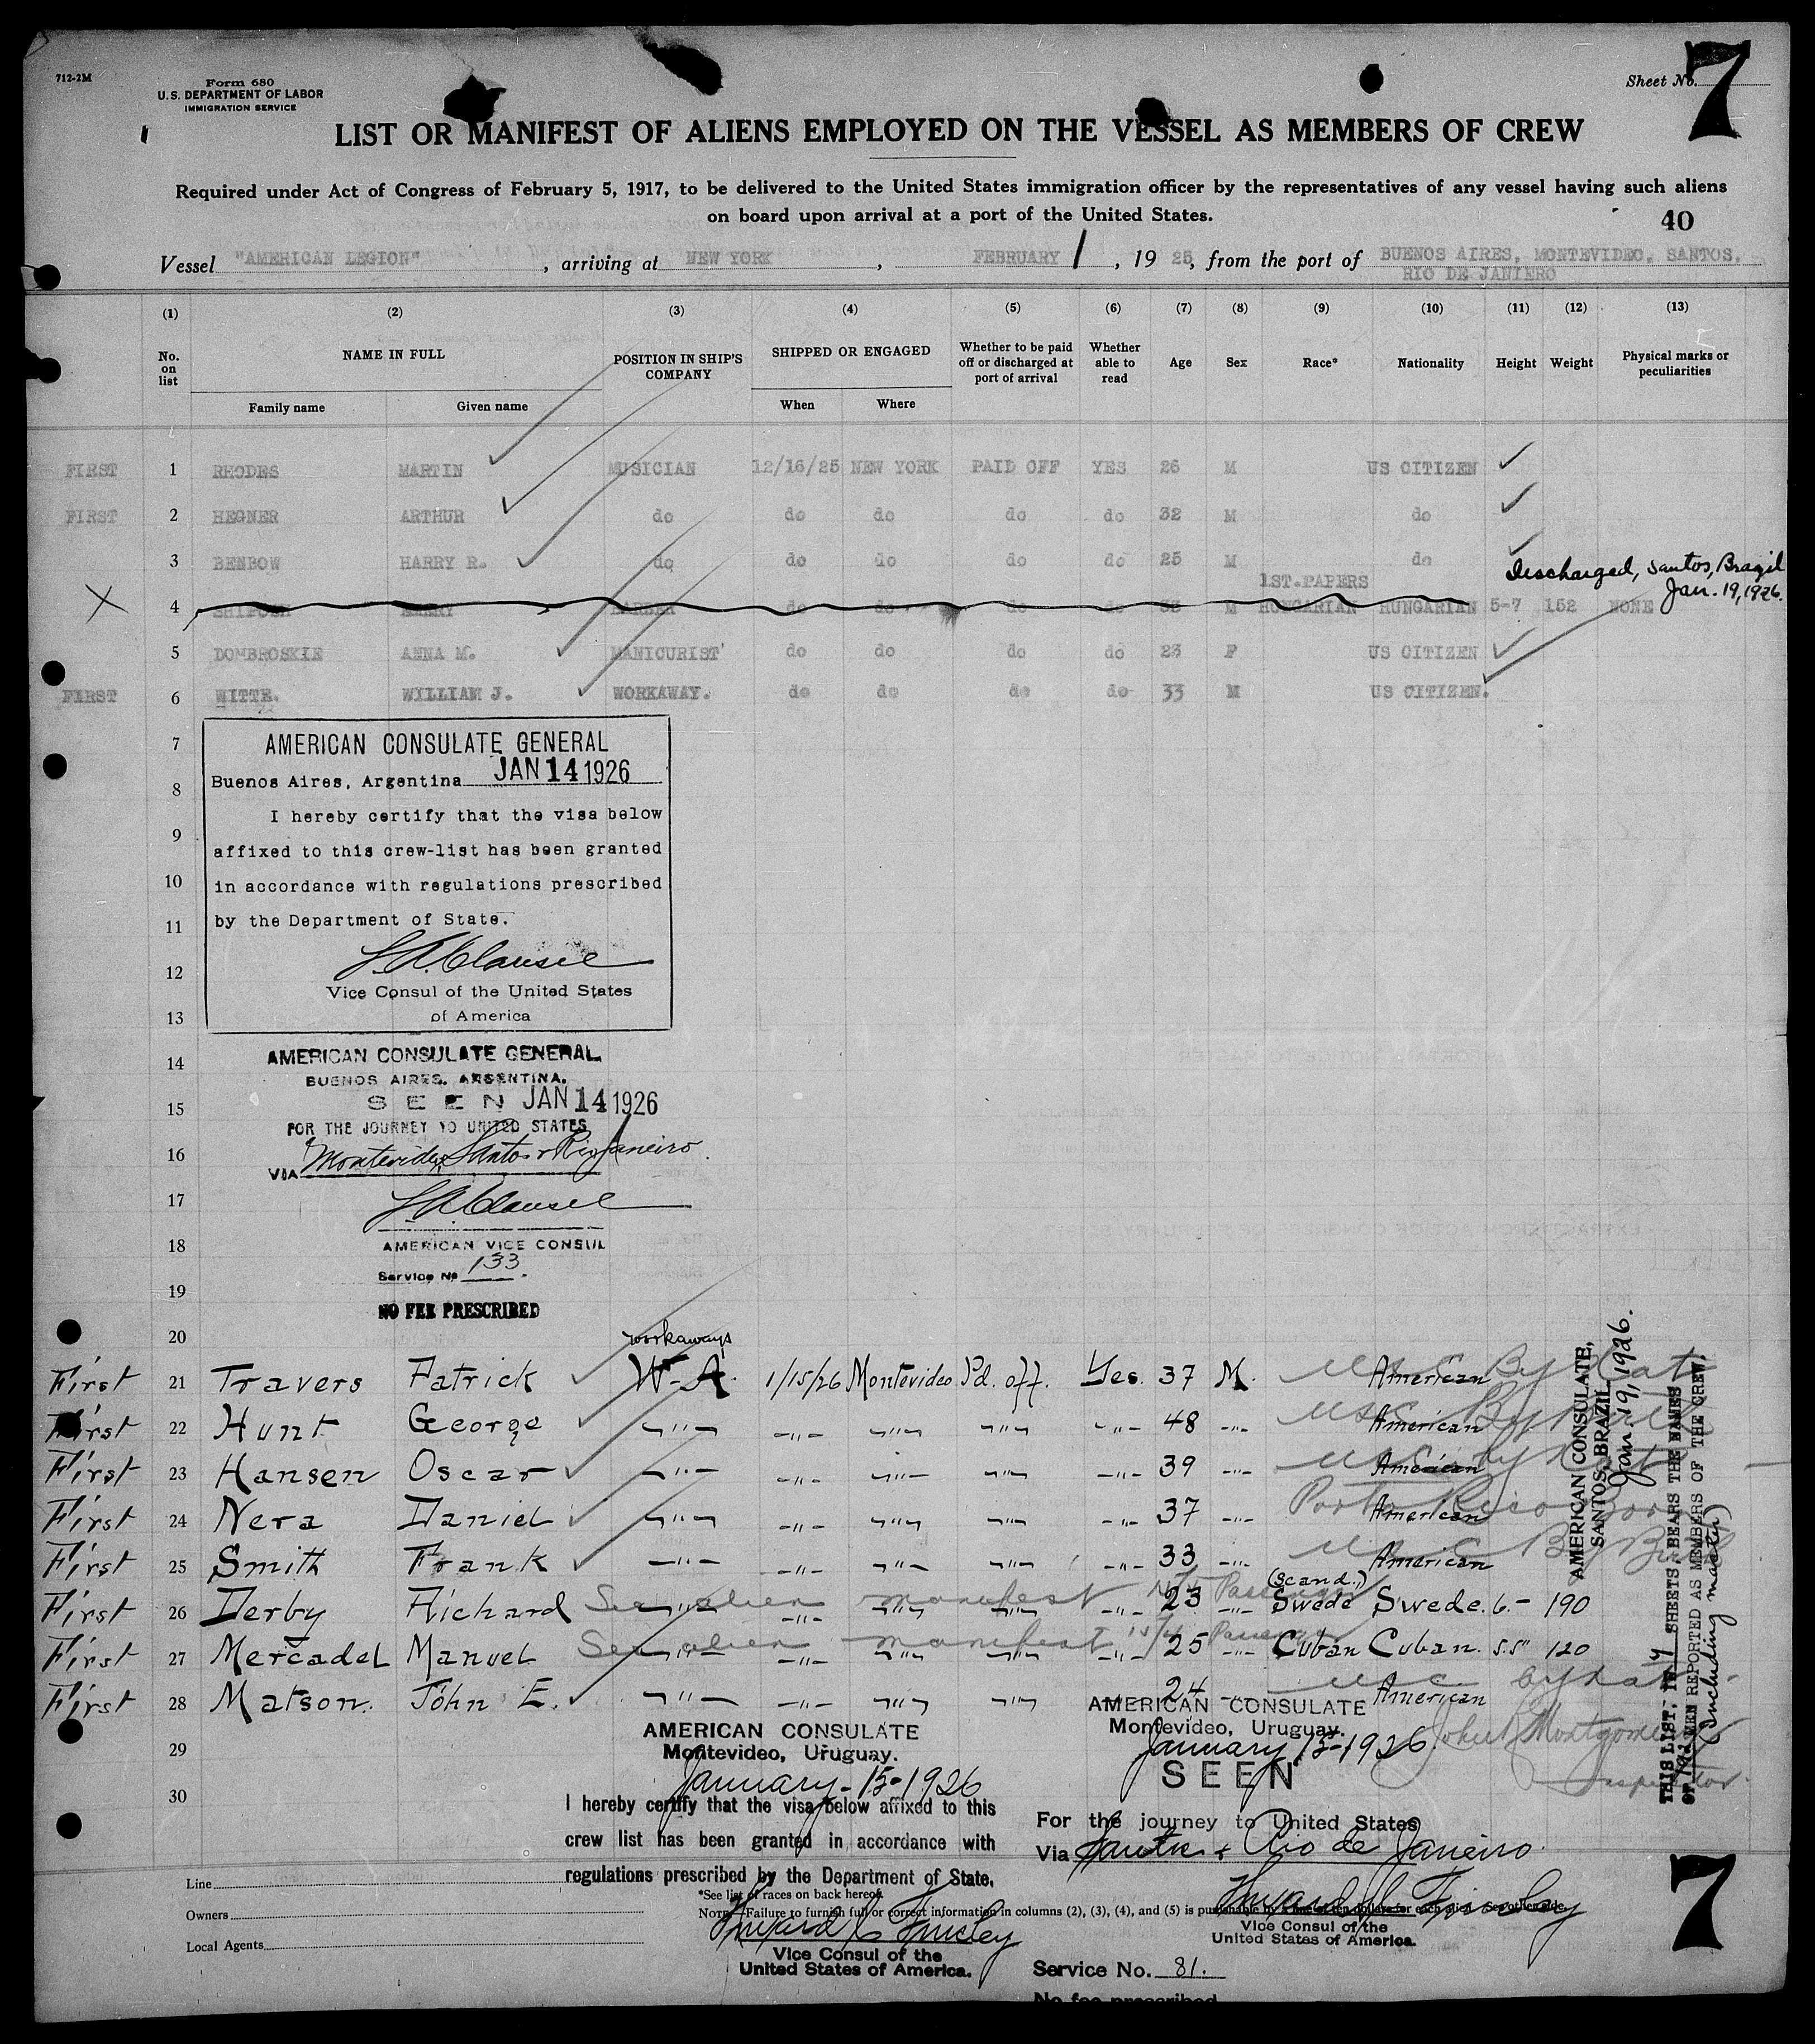 712-2M
Form 680
U.S. DEPARTMENT OF LABOR
IMMIGRATION SERVICE
Sheet No. 7
LIST OR MANIFEST OF ALIENS EMPLOYED ON THE VESSEL AS MEMBERS OF CREW
Required under Act of Congress of February 5, 1917, to be delivered to the United States immigration officer by the representatives of any vessel having such aliens
on board upon arrival at a port of the United States.
40
Vessel "AMERICAN LEGION", arriving at NEW YORK, FEBRUARY 1, 19 25, from the port of BUENOS AIRES, MONTEVIDEO, SANTOS,
RIO DE JANIERO
(1) (2) (3) (4) (5) (6) (7) (8) (9) (10) (11) (12) (13)
No. on list NAME IN FULL POSITION IN SHIP'S COMPANY SHIPPED OR ENGAGED Whether to be paid off or discharged at port of arrival Whether able to read Age Sex Race* Nationality Height Weight Physical marks or peculiarities
Family name Given name When Where
FIRST 1 RHODES MARTIN MUSICIAN 12/16/25 NEW YORK PAID OFF YES 26 M US CITIZEN
FIRST 2 HEGNER ARTHUR do do do do do 32 M do
3 BENBOW HARRY R. do do do do do 25 M do
Discharged, Santos, Brazil
Jan. 19, 1926.
1ST.PAPERS
4 BARBER do do do do 33 M HUNGARIAN HUNGARIAN 5-7 152 NONE
5 DOMBROSKIE ANNA M. MANICURIST do do do do 23 F US CITIZEN
FIRST 6 WITTE. WILLIAM J. WORKAWAY. do do do do 33 M US CITIZEN.
7
AMERICAN CONSULATE GENERAL
8
Buenos Aires, Argentina JAN 14 1926
I hereby certify that the visa below
9
affixed to this crew-list has been granted
10
in accordance with regulations prescribed
11
by the Department of State.
12
Vice Consul of the United States
13
of America
14
AMERICAN CONSULATE GENERAL
BUENOS AIRES, ARGENTINA.
15
SEEN JAN 14 1926
FOR THE JOURNEY TO UNITED STATES
16
VIA Montevideo, Santos & Rio Janeiro.
17
18
AMERICAN VICE CONSUL
Service No 133
19
NO FEE PRESCRIBED
20
workaways
First 21 Travers Patrick W-A. 1/15/26 Montevideo Pd. off. Yes. 37 M. American
First 22 Hunt George -"- -"- -"- -"- -"- 48 -"- American
First 23 Hansen Oscar -"- -"- -"- -"- -"- 39 -"- American
First 24 Nera Daniel -"- -"- -"- -"- -"- 37 -"- Porto Rico Born American
First 25 Smith Frank -"- -"- -"- -"- -"- 33 -"- American
(Scand.)
First 26 Derby Richard See alien manifest 23 -"- Swede Swede. 6.- 190
First 27 Mercadel Manuel See alien manifest 25 -"- Cuban Cuban. 5.5" 120
First 28 Matson. John E. -"- -"- -"- -"- 24 -"- American
29
30
AMERICAN CONSULATE,
SANTOS, BRAZIL
Jan. 19, 1926.
THIS LIST, IN 7 SHEETS, BEARS THE NAMES
OF 192 MEN REPORTED AS MEMBERS OF THE CREW.
(including master)
AMERICAN CONSULATE
Montevideo, Uruguay.
January-15-1926
I hereby certify that the visa below affixed to this
crew list has been granted in accordance with
regulations prescribed by the Department of State.
Vice Consul of the
United States of America.
AMERICAN CONSULATE
Montevideo, Uruguay.
January 15-1926
SEEN
For the journey to United States
Via Santos & Rio de Janeiro.
Vice Consul of the
United States of America.
Service No. 81.
No fee prescribed
John Montgomery
Inspector.
Line
Owners
Local Agents
*See list of races on back hereof.
NOTE.—Failure to furnish full or correct information in columns (2), (3), (4), and (5) is punishable by a fine of ten dollars for each alien. See other side.
7